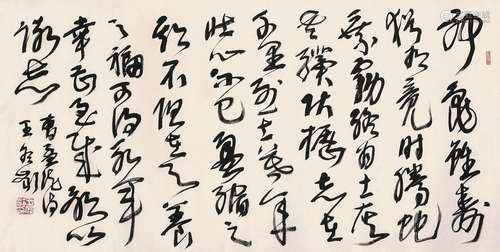 神龜雖壽
猶有竟時騰蛇
乘霧終為土灰
老驥伏櫪志在
千里烈士暮年
壯心不已盈縮之
期不但在天養
之福可得永年
幸甚至哉歌以
詠志 曹孟德詩
王冬齡